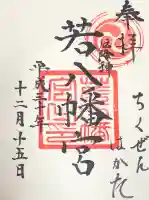 奉拝
厄除神
若八幡宮
平成三十年
十二月十五日
ちくぜん
はかた